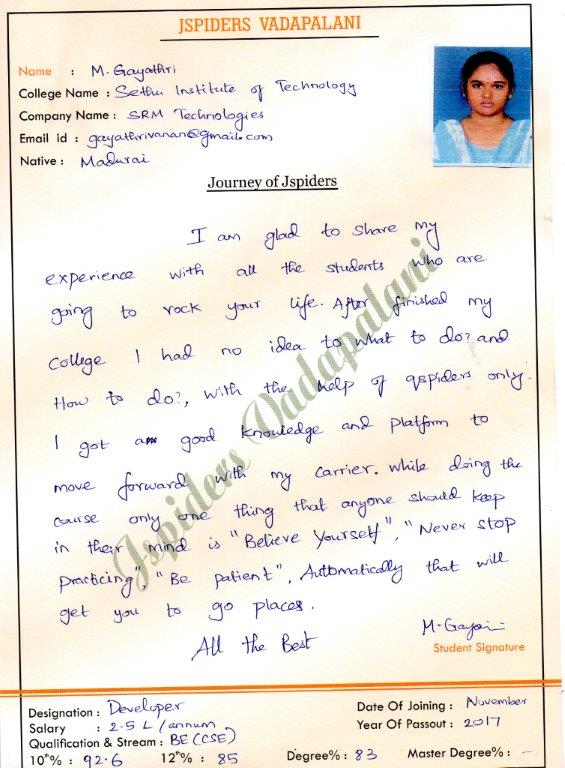 JSPIDERS VADAPALANI
Name : M. Gayathri
College Name : Sethu Institute of Technology
Company Name : SRM Technologies
Email id : gayathrivanan@gmail.com
Native : Madurai
Journey of Jspiders
I am glad to share my
experience with all the students who are
going to rock your life. After finished my
college I had no idea to what to do? and
How to do?, with the help of qspiders only.
I got a good knowledge and platform to
move forward with my carrier. while doing the
course only one thing that anyone should keep
in their mind is "Believe Yourself", "Never stop
practicing" "Be patient", Automatically that will
get you to go places.
All the Best
M. Gaya
Student Signature
Jspiders Vadapalani
Designation : Developer
Date Of Joining : November
Salary : 2.5 L / annum
Year Of Passout : 2017
Qualification & Stream : BE (CSE)
10th% : 92.6 12th% : 85 Degree% : 83 Master Degree% : -